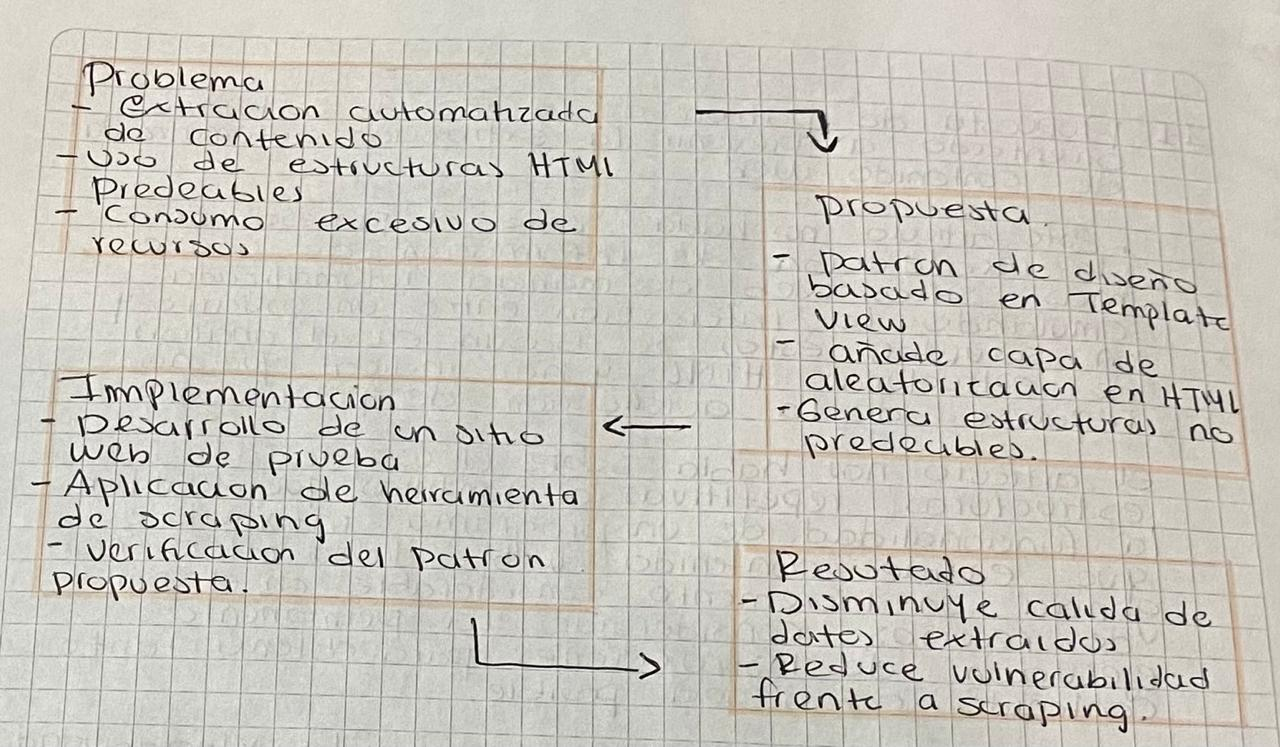 Problema
- extracion automatizada
de contenido
- Uso de estructuras HTML
Predeables
- Consumo excesivo de
recursos
propuesta.
- patron de diseño
basado en Template
View
- añade capa de
aleatoritacion en HTML
- Genera estructuras no
predecibles.
Implementacion
- Desarrollo de un sitio
web de prueba
- Aplicacion de herramienta
de scraping
- verificacion del patron
propuesta.
Resutado
- Disminuye calida de
dates extraidos
- Reduce vulnerabilidad
frente a scraping.